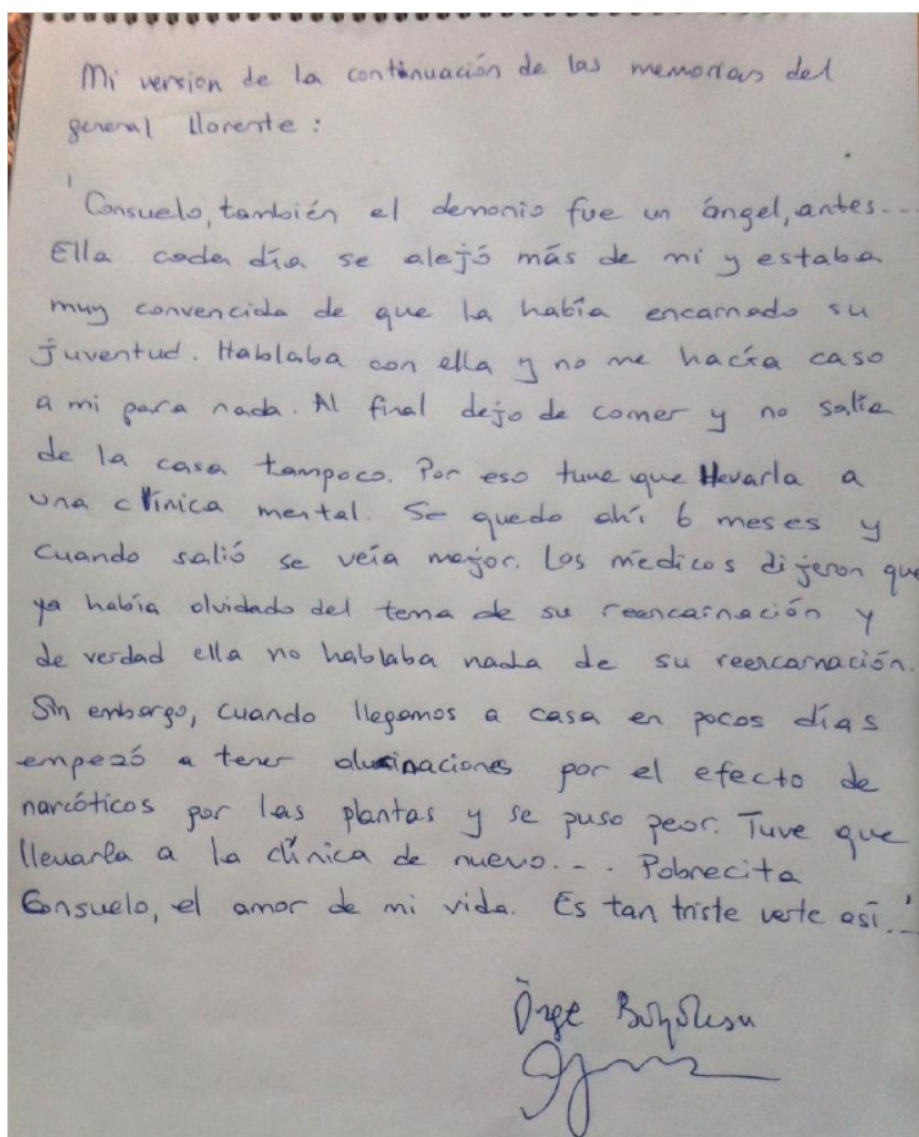 Mi version de la continuación de las memorias del
general llorente :
' Consuelo, también el demonio fue un ángel, antes...
Ella cada día se alejó más de mi y estaba
muy convencida de que la había encarnado su
juventud. Hablaba con ella y no me hacía caso
a mi para nada. Al final dejo de comer y no salia
de la casa tampoco. Por eso tuve que llevarla a
una clínica mental. Se quedo ahí 6 meses y
cuando salió se veía mejor. Los médicos dijeron que
ya había olvidado del tema de su reencarnación y
de verdad ella no hablaba nada de su reencarnación.
Sin embargo, cuando llegamos a casa en pocos días
empezó a tener alusinaciones por el efecto de
narcóticos por las plantas y se puso peor. Tuve que
llevarla a la clínica de nuevo.... Pobrecita
Consuelo, el amor de mi vida. Es tan triste verte así...'